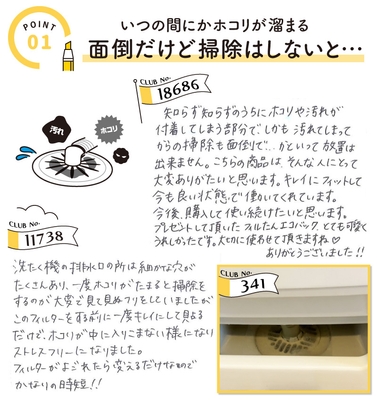 POINT
01
いつの間にかホコリが溜まる
面倒だけど掃除はしないと…
CLUB No.
18686
知らず知らずのうちにホコリや汚れが
付着してしまう部分で しかも 汚れてしまって
からの掃除も面倒りで、かといって放置は
出来ません。こちらの商品は、そんな人にとって
大変ありがたいと思います。キレイにフィットして
今も良い状態で働いてくれています。
今後、購入して使い続けたいと思います。
プレゼントして頂いた フィルたんエコバック、とても可愛く
うれしかったです。大切に使わせて頂きますね♡
ありがとうございました!!
汚れ
ホコリ
CLUB No.
11738
洗たく機の排水口の所は細かな穴が
たくさんあり、一度ホコリがたまると掃除を
するのが大変で見て見ぬフリをしていましたが
このフィルターをする前に一度キレイにして貼る
だけで、ホコリが中に入りこまない様になり
ストレスフリーになりました。
フィルターがよごれたら変えるだけなので
かなりの時短!!
CLUB No.
341